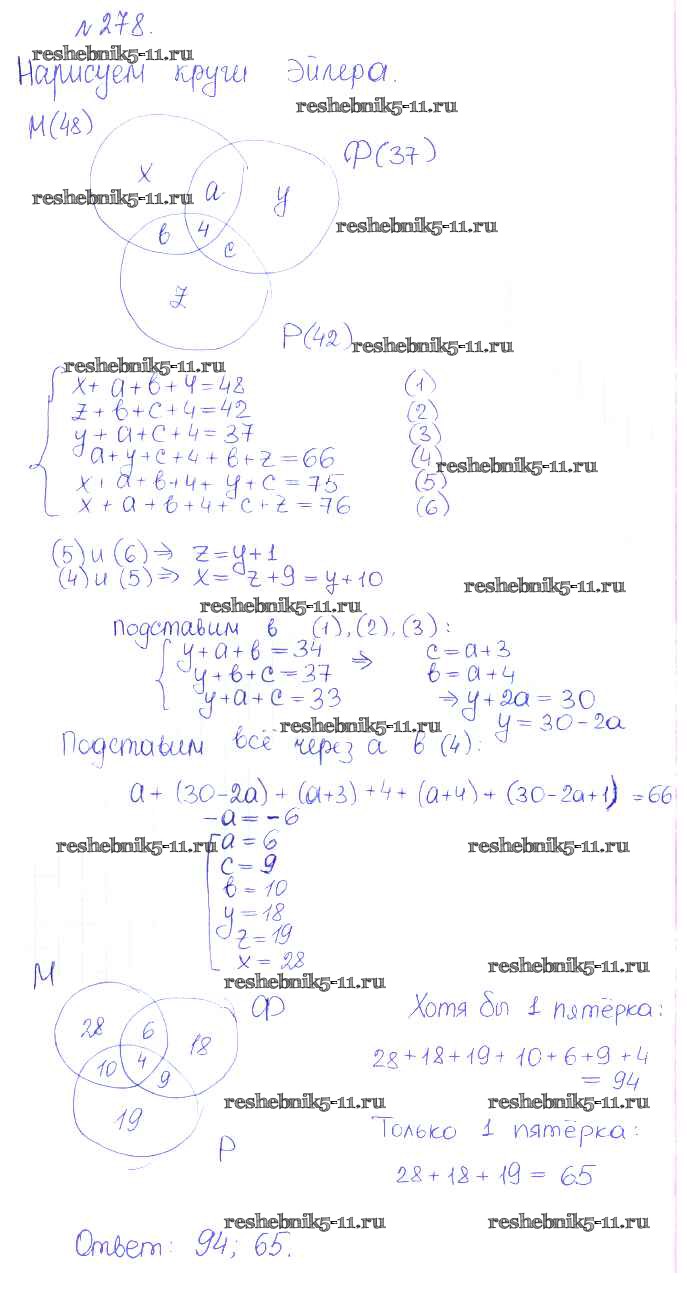 №278.
reshebnik5-11.ru
Нарисуем круги Эйлера.
reshebnik5-11.ru
М(48)
Ф(37)
x
a
y
reshebnik5-11.ru
reshebnik5-11.ru
в 4 с
z
Р(42)
reshebnik5-11.ru
reshebnik5-11.ru
x+a+в+4=48 (1)
z+в+c+4=42 (2)
y+a+c+4=37 (3)
a+y+c+4+в+z=66 (4)
reshebnik5-11.ru
x+a+в+4+y+c=75 (5)
x+a+в+4+c+z=76 (6)
(5) и (6)⇒ z=y+1
(4) и (5)⇒ x=z+9=y+10
reshebnik5-11.ru
reshebnik5-11.ru
подставим в (1),(2),(3):
y+a+в=34 ⇒ c=a+3
y+в+c=37 в=a+4
y+a+c=33 ⇒y+2a=30
reshebnik5-11.ru
y=30-2a
Подставим всё через a в (4):
a+(30-2a)+(a+3)+4+(a+4)+(30-2a+1)=66
-a=-6
reshebnik5-11.ru
a=6
reshebnik5-11.ru
c=9
в=10
y=18
z=19
x=28
reshebnik5-11.ru
reshebnik5-11.ru
М
Ф
Хотя бы 1 пятёрка:
28 6 18
10 4 9
28+18+19+10+6+9+4
=94
reshebnik5-11.ru
reshebnik5-11.ru
19
Р
Только 1 пятёрка:
28+18+19=65
reshebnik5-11.ru
reshebnik5-11.ru
Ответ: 94; 65.